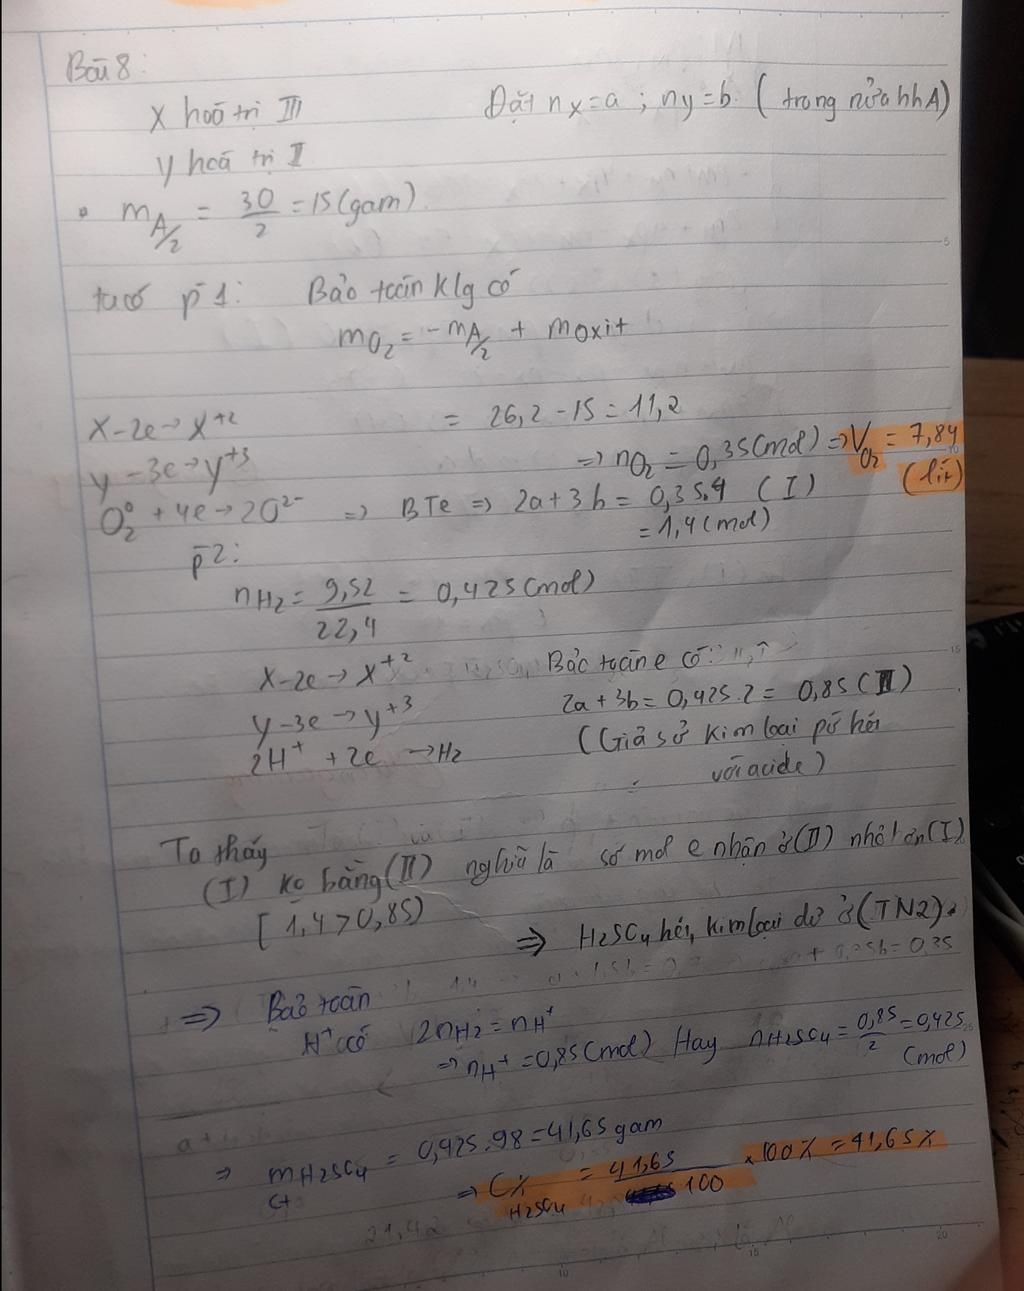 Bài 8:
X hoá trị III
Đặt nx = a ; ny = b ( trong nửa hh A)
y hoá trị II
• mA/2 = 30/2 = 15 (gam)
ta có p̄ 1: Bảo toàn klg có
mO2 = -mA/2 + moxit
= 26,2 - 15 = 11,2
X - 2e → X+2
⇒ nO2 = 0,35 (mol) ⇒ VO2 = 7,84 (lít)
y - 3e → y+3
O2⁰ + 4e → 2O2- ⇒ BTe ⇒ 2a + 3b = 0,35.4 (I)
= 1,4 (mol)
p̄ 2:
nH2 = 9,52/22,4 = 0,425 (mol)
X - 2e → X+2
Bảo toàn e có:
y - 3e → y+3
2a + 3b = 0,425.2 = 0,85 (II)
2H+ + 2e → H2
(Giả sử kim loại pứ hết
với acide)
Ta thấy
(I) ko bằng (II) nghĩa là số mol e nhận ở (II) nhỏ hơn (I)
[ 1,4 > 0,85)
⇒ H2SO4 hết, kim loại dư ở (TN2)
⇒ Bảo toàn
H+ có 2nH2 = nH+
⇒ nH+ = 0,85 (mol) Hay nH2SO4 = 0,85/2 = 0,425 (mol)
⇒ mH2SO4 ct = 0,425.98 = 41,65 gam
⇒ C% H2SO4 = 41,65/100 × 100% = 41,65%